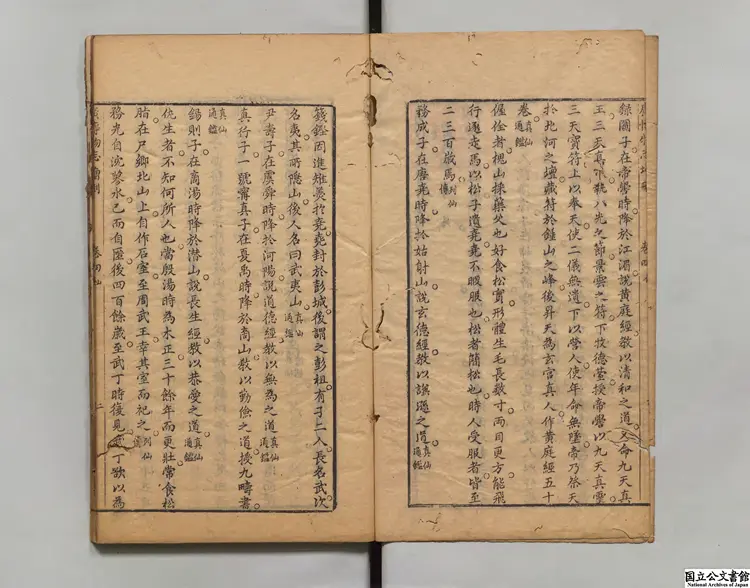 錄圖子在帝嚳時降於江湄說黃庭經教以清和之道又命九天真
王三天真皇執八光之節景雲之符下牧德臺授帝嚳以九天真靈
三天寶符上以奉天使二儀無遺下以營人使年命無墜帝乃祭天
於北河之壇藏符於鍾山之峰後昇天為玄宮真人作黃庭經五十
卷真仙通鑑
偓佺者槐山採藥父也好食松實形體生毛長數寸兩目更方能飛
行逐走馬以松子遺堯堯不暇服也松者簡松也時人受服者皆至
二三百歲焉列仙傳
務成子在唐堯時降於姑射山說玄德經教以謙遜之道真仙通鑑
籛鏗因進雉羮於堯堯封於彭城後謂之彭祖有子二人長名武次
名夷其所隱山後人名曰武夷山真仙通鑑
尹壽子在虞舜時降於河陽說道德經教以無為之道真仙通鑑
真行子一號甯真子在夏禹時降於商山教以勤儉之道授九疇書
真仙通鑑
錫則子在商湯時降於潛山說長生經教以恭愛之道真仙通鑑
仇生者不知何所人也當殷湯時為木正三十餘年而更壯常食松
脂在尸鄉北山上自作石室至周武王幸其室而祀之列仙傳
務光自沈蓼水已而自匿後四百餘歲至武丁時復見武丁欲以為
國立公文書館
National Archives of Japan